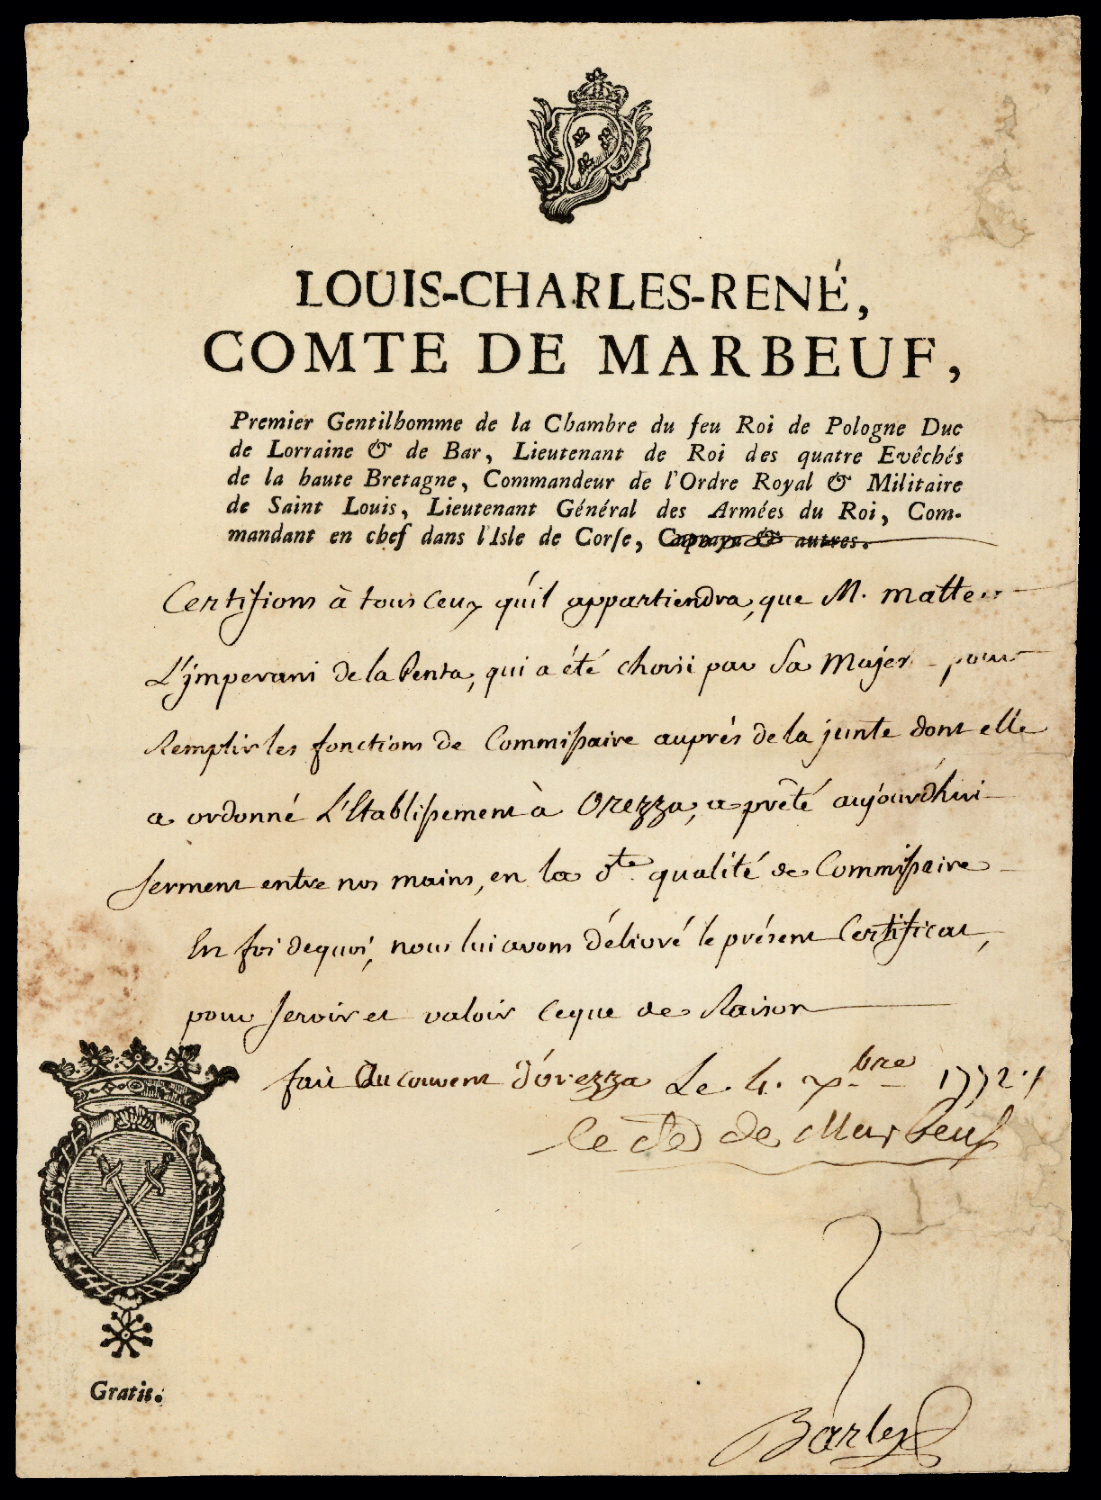 LOUIS-CHARLES-RENÉ,
COMTE DE MARBEUF,
Premier Gentilhomme de la Chambre du feu Roi de Pologne Duc
de Lorraine & de Bar, Lieutenant de Roi des quatre Evêchés
de la haute Bretagne, Commandeur de l'Ordre Royal & Militaire
de Saint Louis, Lieutenant Général des Armées du Roi, Com-
mandant en chef dans l'Isle de Corse, Capraya & autres.
Certifions à tous Ceux qu'il appartiendra, que M. matteo
L'jmperani de la Penta, qui a été choisi par Sa Majesté pour
Remplir les fonctions de Commissaire auprés de la junte dont elle
a ordonné L'Etablissement à Orezza, a prêté aujourd'hui
serment entre nos mains, en la dte qualité de Commissaire
En foi de quoi, nous lui avons délivré le présent Certificat,
pour servir et valoir ce que de Raison
fait Au couvent d'orezza Le 4. 7bre 1772./
le Cte de Marbeuf
Gratis.